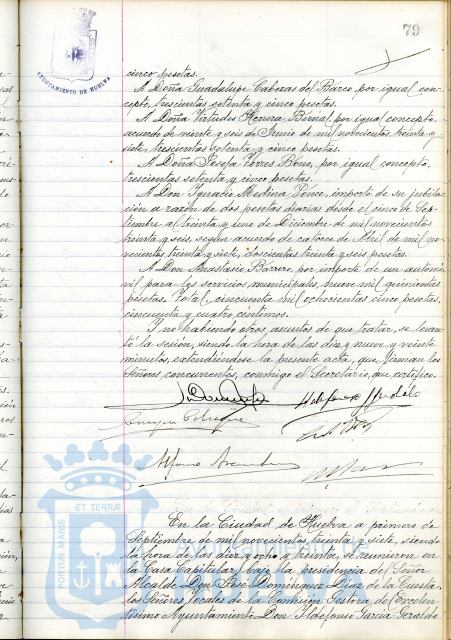 79
AYUNTAMIENTO DE HUELVA
cinco pesetas.
A Doña Guadalupe Caberas del Barco por igual con-
cepto, trescientas setenta y cinco pesetas.
A Doña Virtudes Herrera Bernal, por igual concepto,
acuerdo de veinte y seis de Junio de mil novecientos treinta y
siete, trescientas setenta y cinco pesetas.
A Doña Josefa Torres Borne, por igual concepto,
trescientas setenta y cinco pesetas.
A Don Ignacio Medina Ponce, importe de su jubila-
ción a razón de dos pesetas diarias desde el cinco de Sep-
tiembre al treinta y uno de Diciembre de mil novecientos
treinta y seis, segun acuerdo de catorce de Abril de mil no-
vecientos treinta y siete, doscientas treinta y seis pesetas.
A Don Anastasio Barrero, por importe de un automó-
vil para los servicios municipales, nueve mil quinientas
pesetas. Total, cincuenta mil ochocientas cinco pesetas,
cincuenta y cuatro céntimos.
Y no habiendo otros asuntos de que tratar, se levan-
tó la sesión, siendo la hora de las diez y nueve y veinte
minutos, extendiéndose la presente acta, que firman los
Señores concurrentes, conmigo el Secretario, que certifico.
En la Ciudad de Huelva a primero de
Septiembre de mil novecientos treinta y siete, siendo
la hora de las diez y ocho y treinta, se reunieron en
la Casa Capitular, bajo la presidencia del Señor
Alcalde Don José Dominguez Diaz de la Cuesta,
los Señores Vocales de la Comisión Gestora del Excelen-
tísimo Ayuntamiento Don Ildefonso Garcia Geraldo
PORTUS MARIS
ET TERRÆ